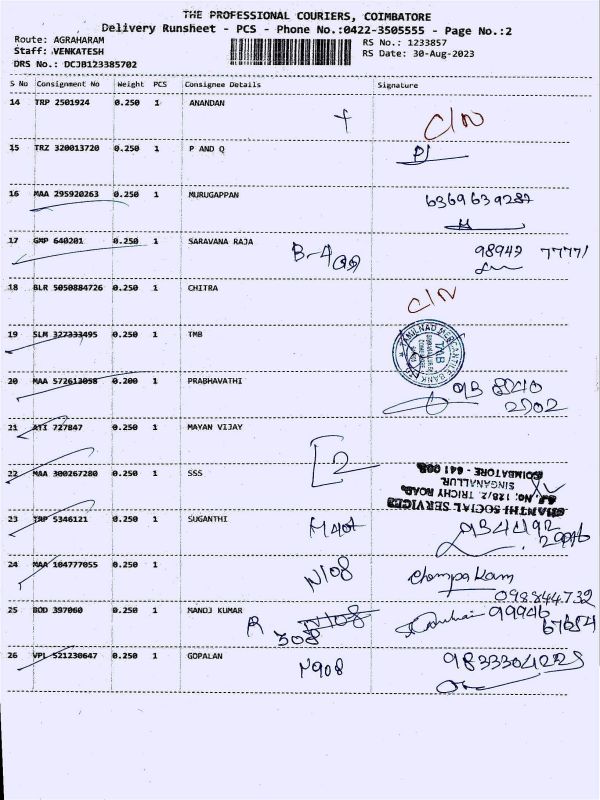 THE PROFESSIONAL COURIERS, COIMBATORE
Delivery Runsheet - PCS - Phone No.:0422-3505555 - Page No.:2
Route: AGRAHARAM
RS No.: 1233857
Staff: VENKATESH
RS Date: 30-Aug-2023
DRS No.: DCJB123385702
S No Consignment No Weight PCS Consignee Details Signature
14 TRP 2501924 0.250 1 ANANDAN C/N
15 TRZ 320013720 0.250 1 P AND Q
16 MAA 295920263 0.250 1 MURUGAPPAN 6369639287
17 GMP 640201 0.250 1 SARAVANA RAJA B-4 98942 77771
18 BLR 5050884726 0.250 1 CHITRA C/N
19 SLM 327333495 0.250 1 TMB
TAMILNAD MERCANTILE BANK
20 MAA 572613058 0.200 1 PRABHAVATHI
21 ATI 727847 0.250 1 MAYAN VIJAY
22 MAA 300267280 0.250 1 SSS [2
SHANTHI SOCIAL SERVICES
NO: 128/2, TRICHY ROAD,
SINGANALLUR,
COIMBATORE - 641 005.
23 TRP 5346121 0.250 1 SUGANTHI M401
24 MAA 104777055 0.250 1 N108
098844732
25 BOD 397060 0.250 1 MANOJ KUMAR A N108 99946
308 67654
26 VPL 521230647 0.250 1 GOPALAN N908